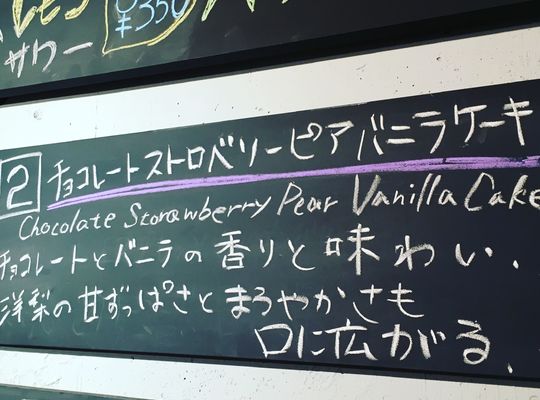 レモン
サワー
¥350
2 チョコレートストロベリーピアバニラケーキ
Chocolate Storawberry Pear Vanilla Cake
チョコレートとバニラの香りと味わい、
洋梨の甘ずっぱさとまろやかさも
口に広がる。